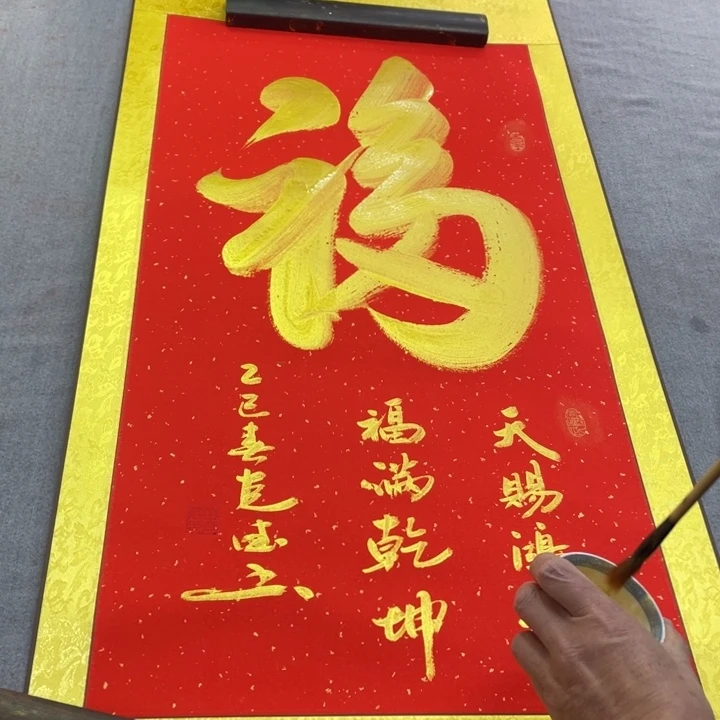 福
天賜鴻
福满乾坤
乙巳春